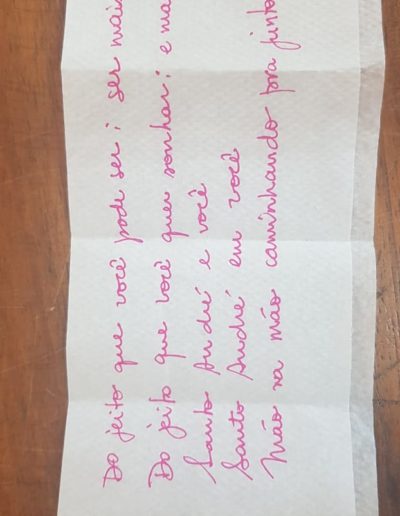 Do jeito que você pode ser; ser mais
Do jeito que você quer sonhar; e ma
Santo André e você
Santo André em você
Mão na mão caminhando pra junto